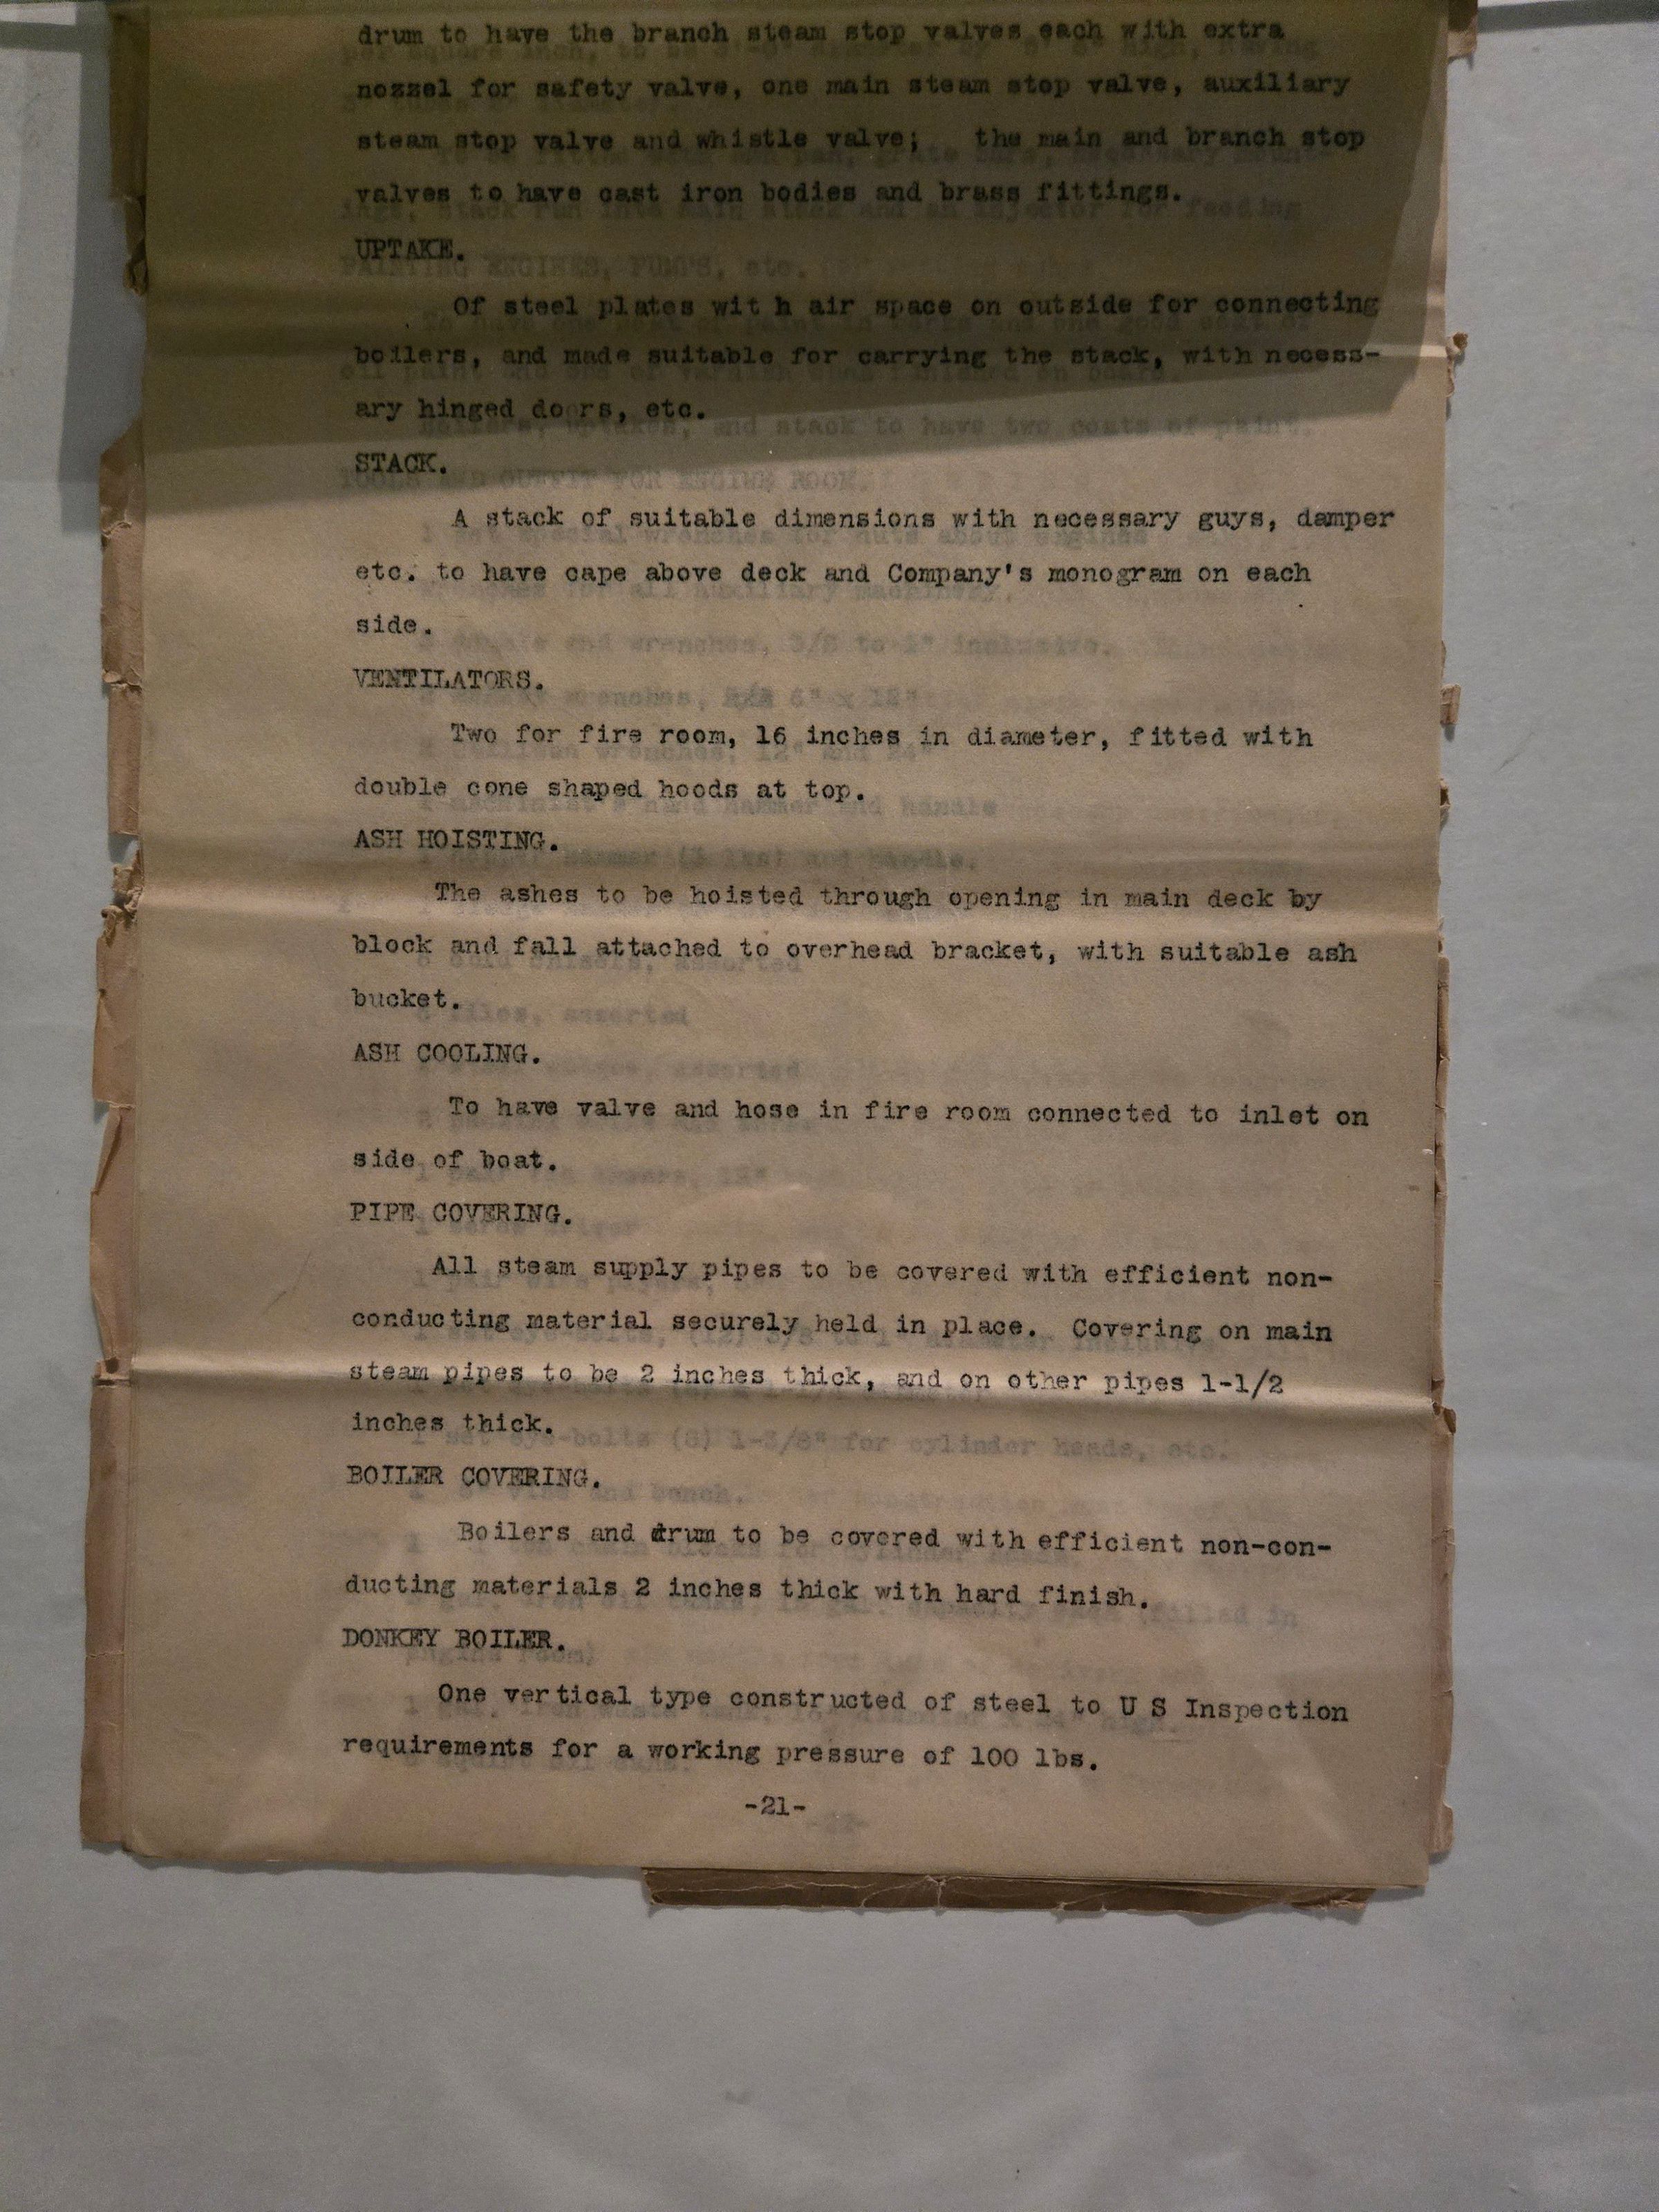 drum to have the branch steam stop valves each with extra
nozzel for safety valve, one main steam stop valve, auxiliary
steam stop valve and whistle valve;   the main and branch stop
valves to have cast iron bodies and brass fittings.
UPTAKE.
Of steel plates wit h air space on outside for connecting
boilers, and made suitable for carrying the stack, with necess-
ary hinged doors, etc.
STACK.
A stack of suitable dimensions with necessary guys, damper
etc. to have cape above deck and Company's monogram on each
side.
VENTILATORS.
Two for fire room, 16 inches in diameter, fitted with
double cone shaped hoods at top.
ASH HOISTING.
The ashes to be hoisted through opening in main deck by
block and fall attached to overhead bracket, with suitable ash
bucket.
ASH COOLING.
To have valve and hose in fire room connected to inlet on
side of boat.
PIPE COVERING.
All steam supply pipes to be covered with efficient non-
conducting material securely held in place.  Covering on main
steam pipes to be 2 inches thick, and on other pipes 1-1/2
inches thick.
BOILER COVERING.
Boilers and drum to be covered with efficient non-con-
ducting materials 2 inches thick with hard finish.
DONKEY BOILER.
One vertical type constructed of steel to U S Inspection
requirements for a working pressure of 100 lbs.
-21-